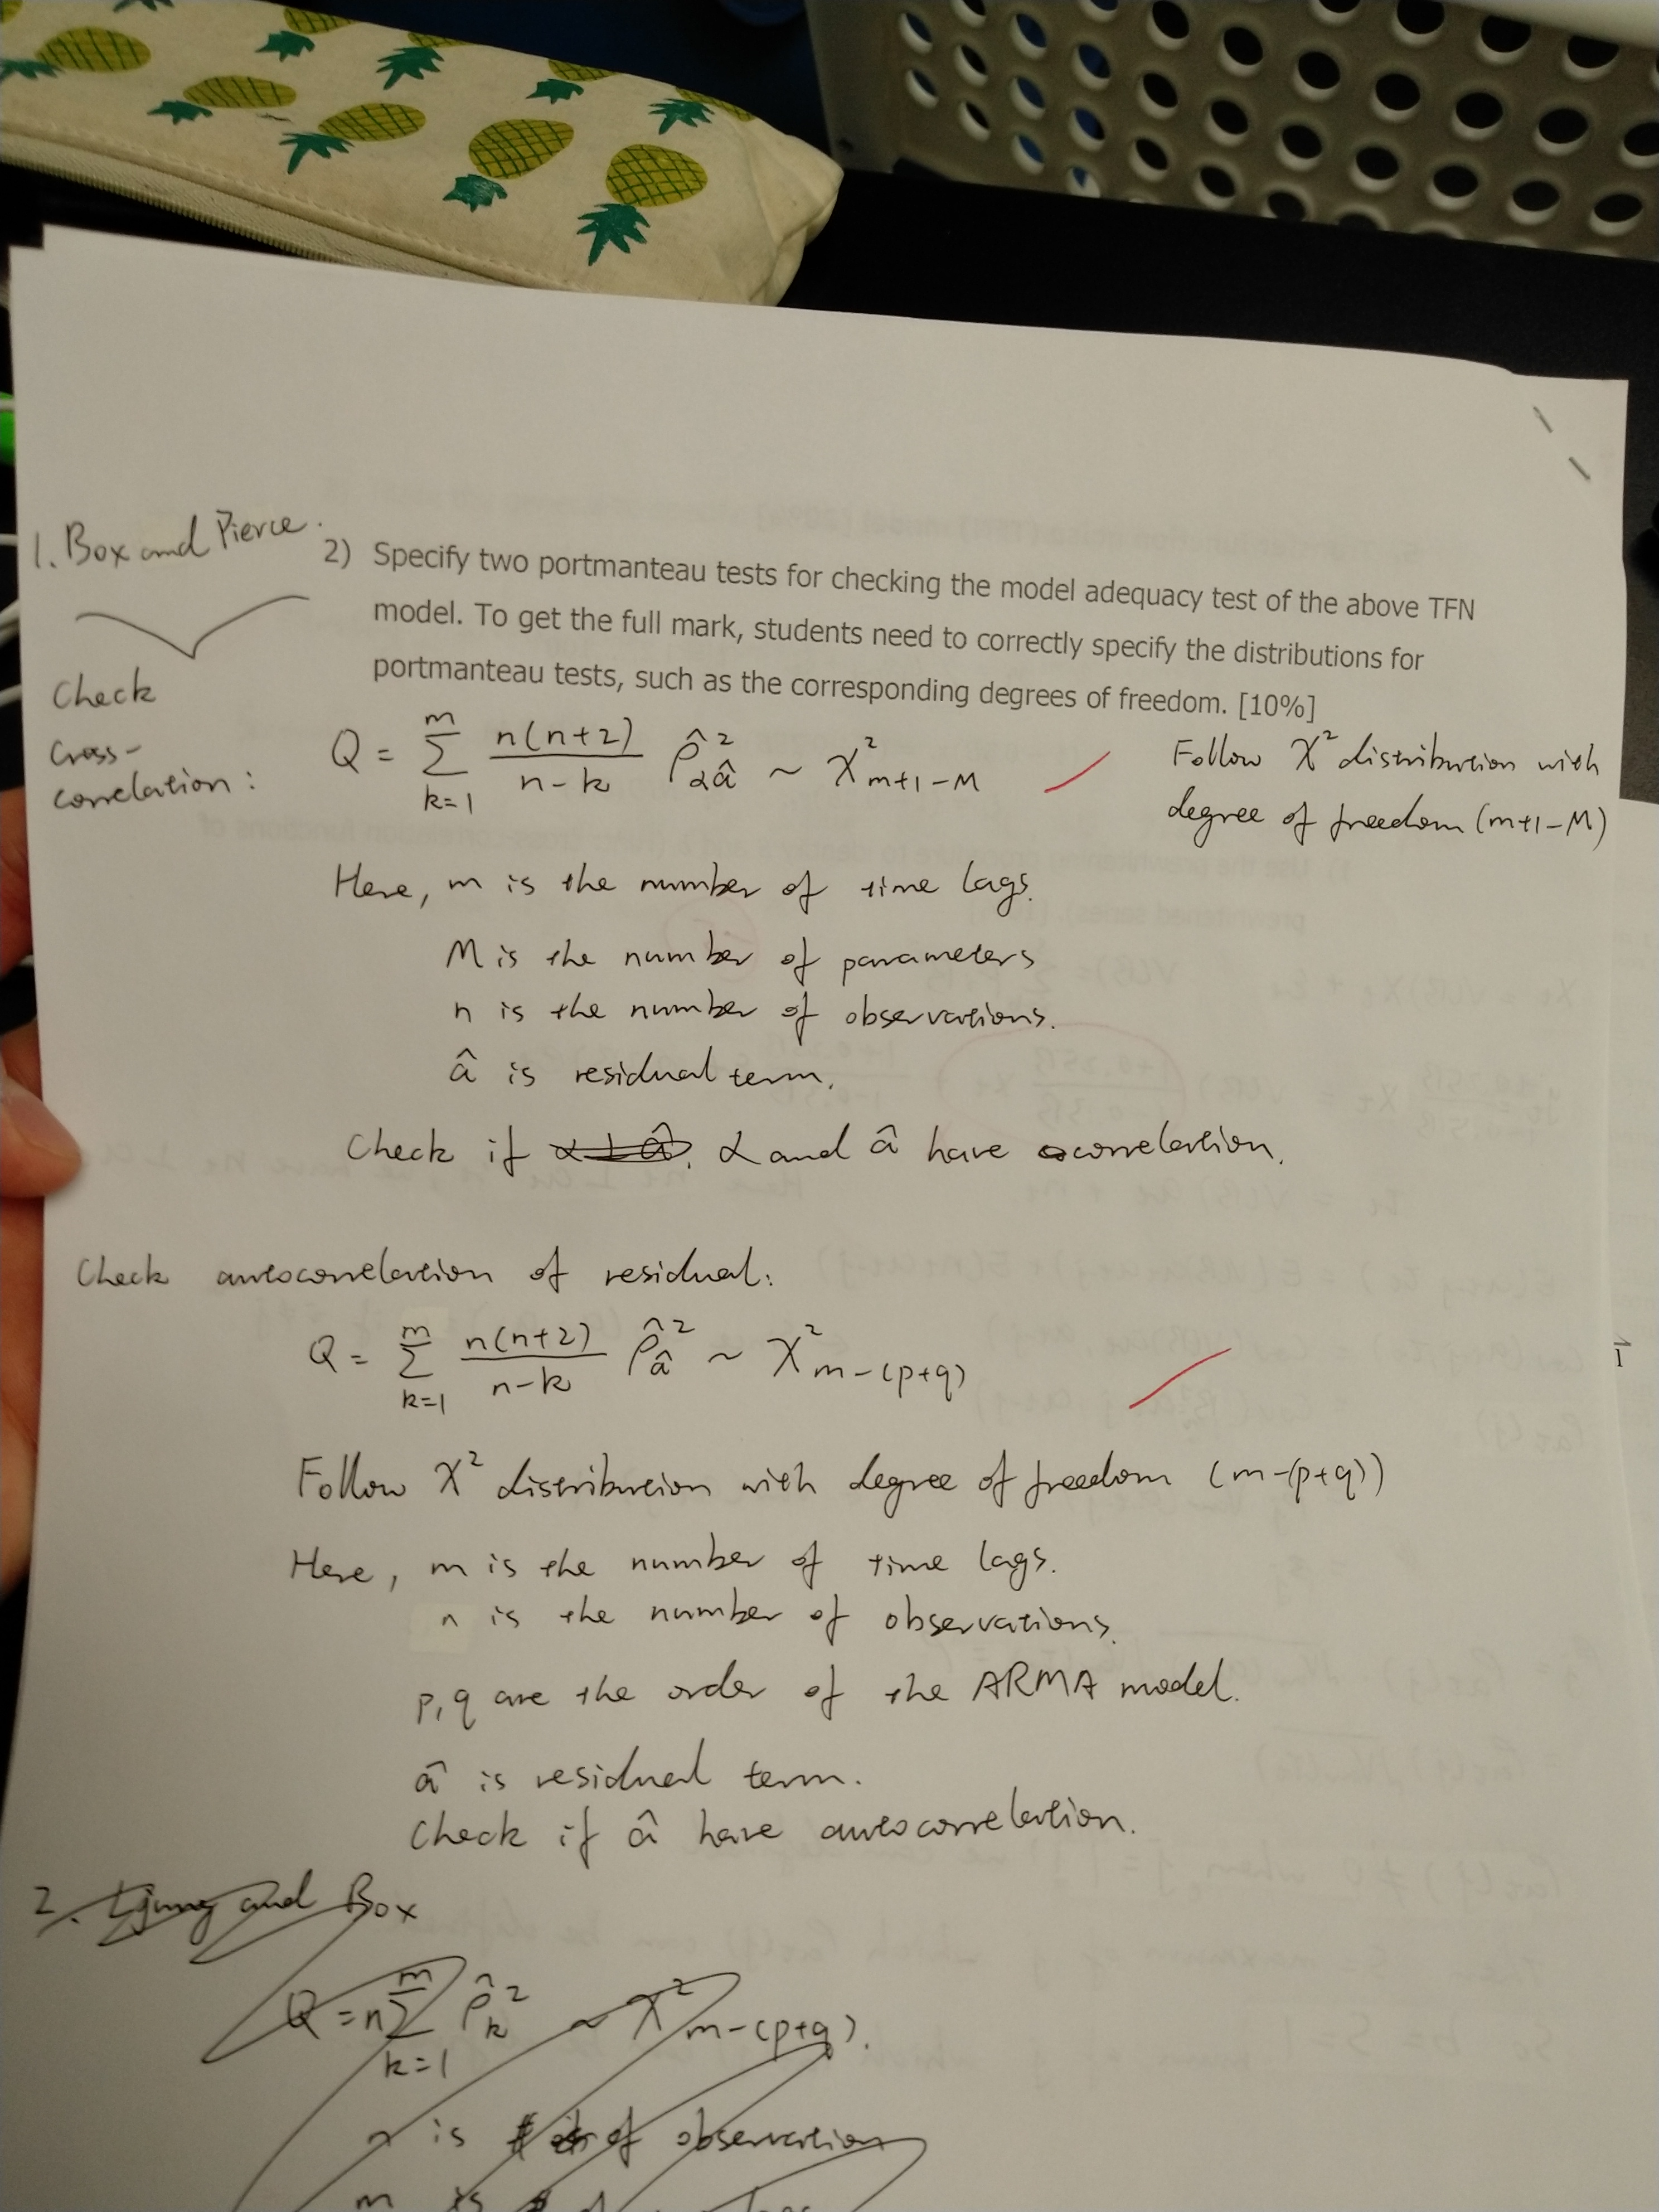 1. Box and Pierce.
2) Specify two portmanteau tests for checking the model adequacy test of the above TFN
model. To get the full mark, students need to correctly specify the distributions for
portmanteau tests, such as the corresponding degrees of freedom. [10%]
Check
cross-
correlation:
Q = ∑_{k=1}^{m} n(n+2)/(n-k) ρ̂²_{αâ} ~ χ²_{m+1-M}
Follow χ² distribution with
degree of freedom (m+1-M)
Here, m is the number of time lags.
M is the number of parameters
n is the number of observations.
â is residual term.
Check if α ⊥ â. α and â have correlation.
Check autocorrelation of residual:
Q = ∑_{k=1}^{m} n(n+2)/(n-k) ρ̂²_{â} ~ χ²_{m-(p+q)}
Follow χ² distribution with degree of freedom (m-(p+q))
Here, m is the number of time lags.
n is the number of observations.
p, q are the order of the ARMA model.
â is residual term.
Check if â have autocorrelation.
2. Ljung and Box
Q = n∑_{k=1}^{m} ρ̂²_{k} ~ χ²_{m-(p+q)}.
n is # of observation
m is # of lags
1